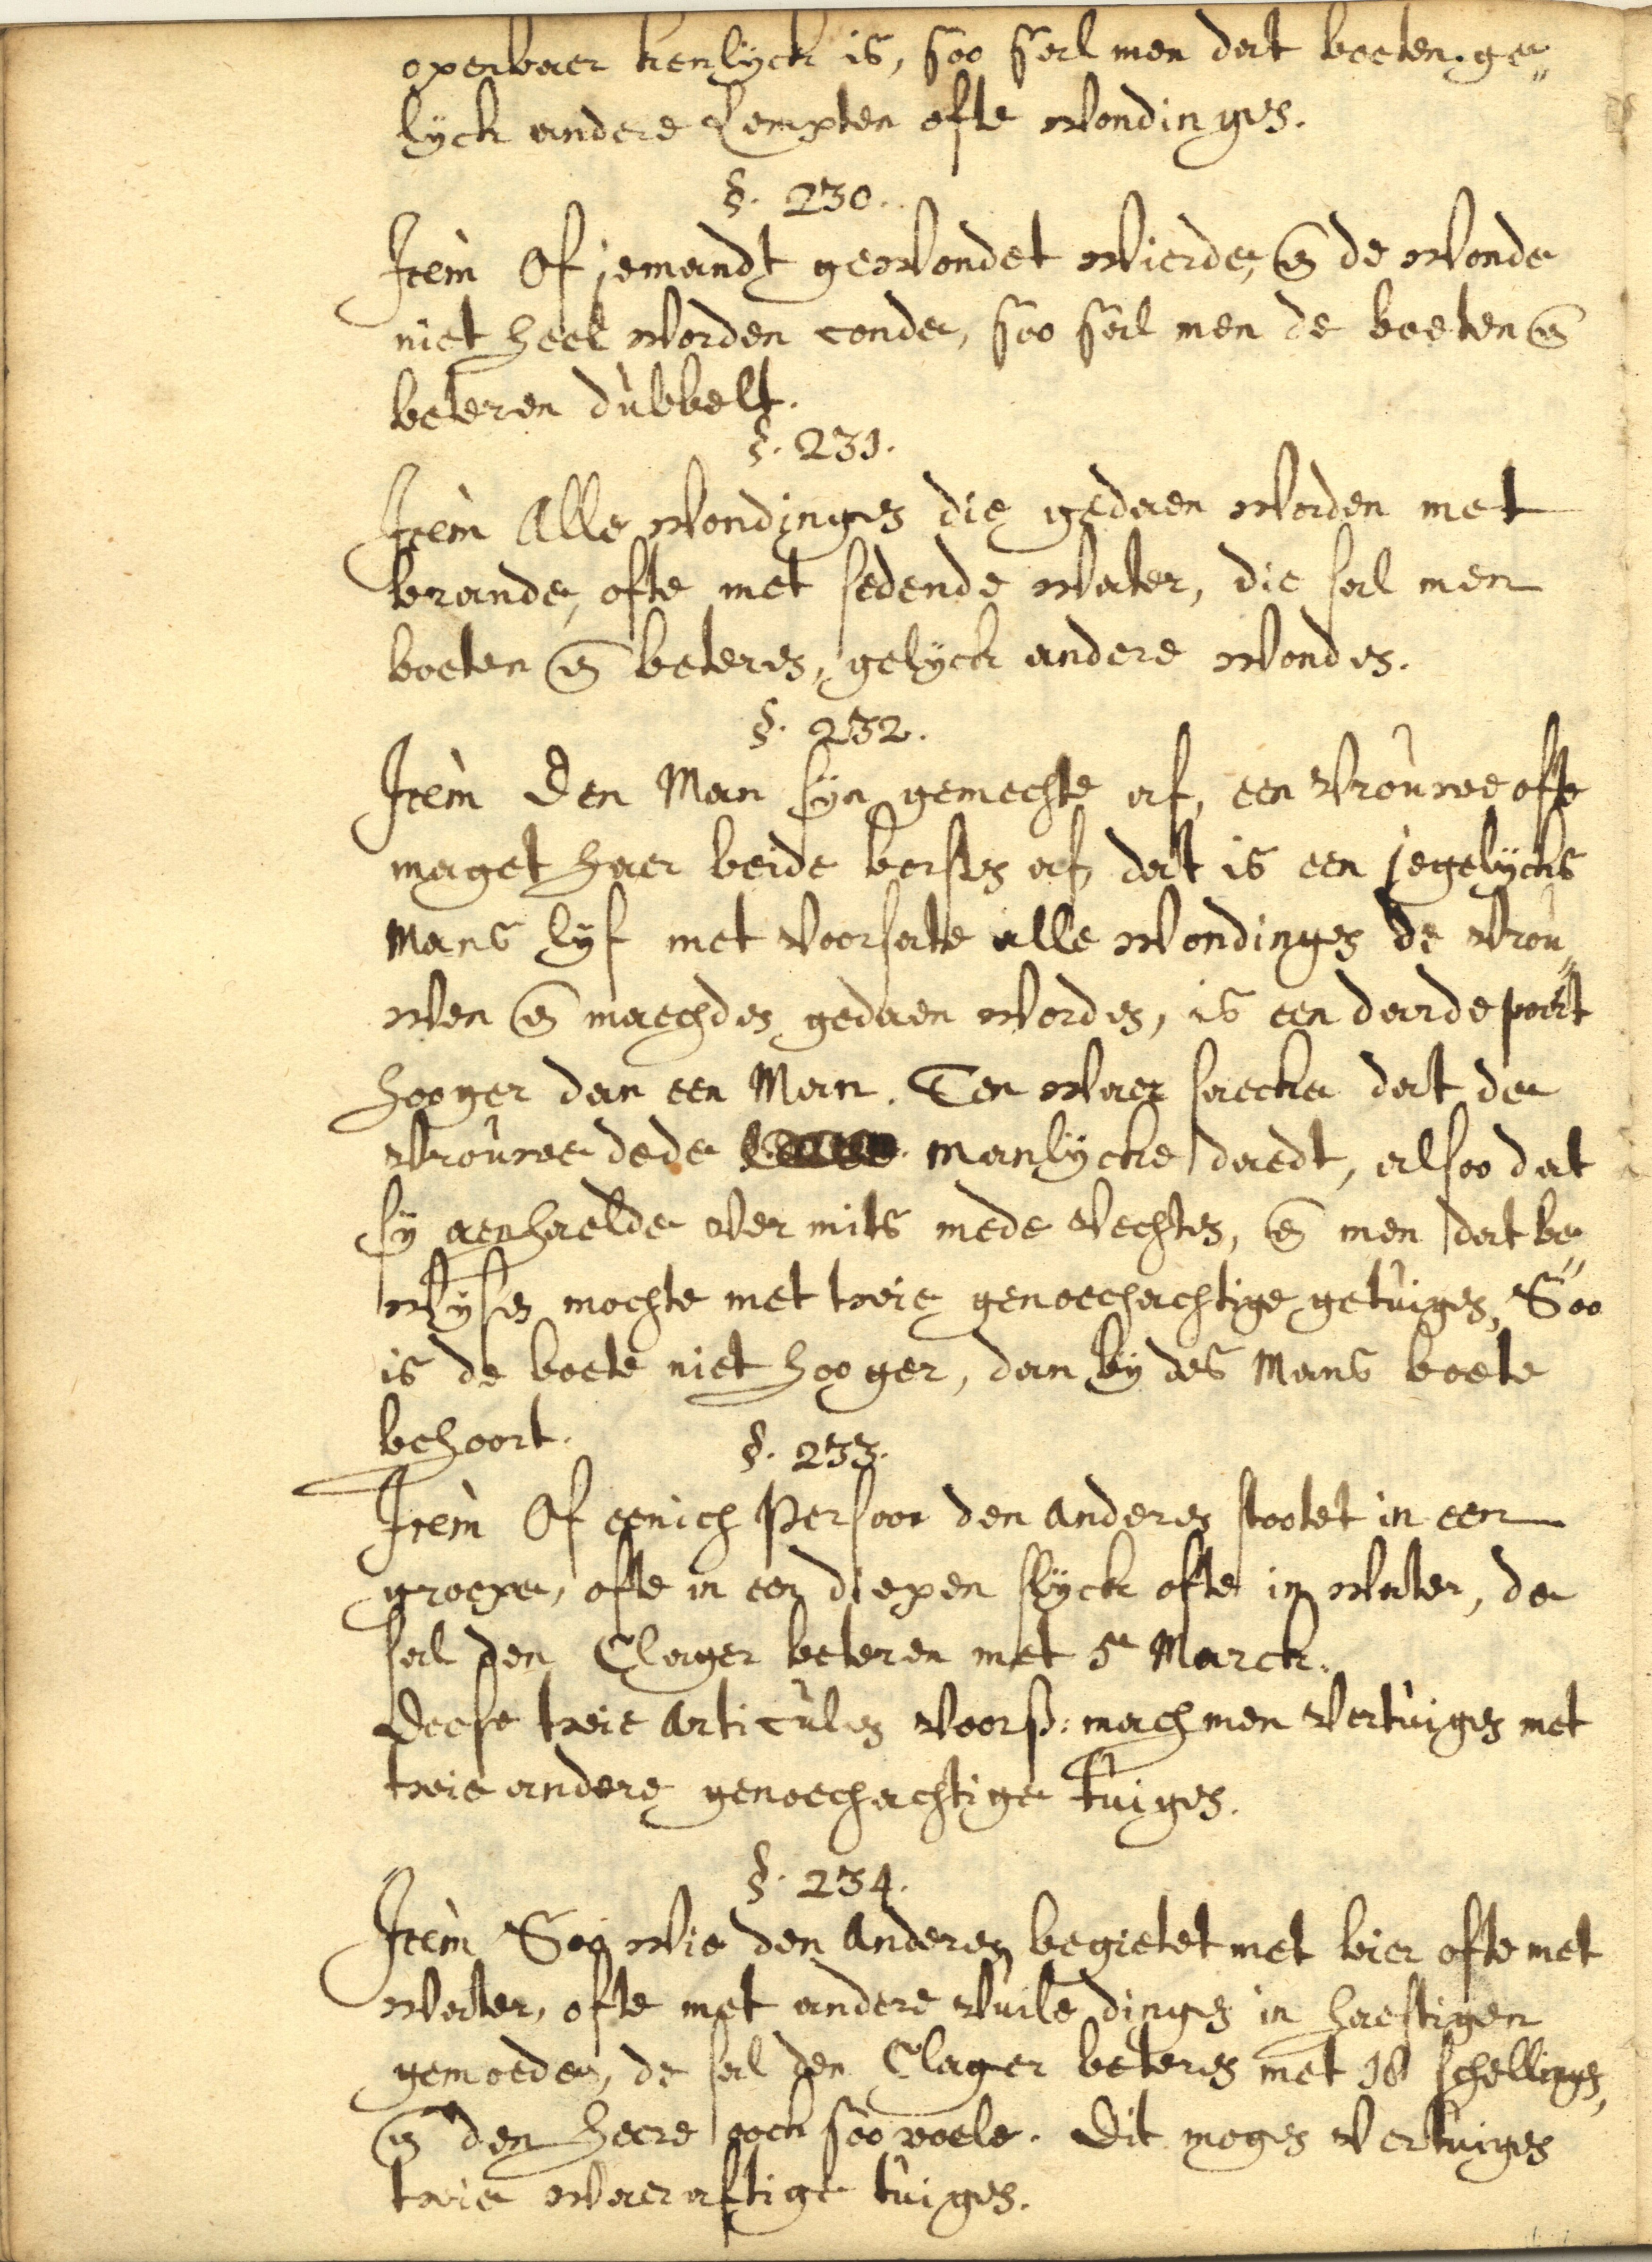 openbaer kenlijck is, soo sal men dat boeten, ge„
lijck andere Lempten ofte Wondinges.
§. 230.
Item Of jemandt geWondet Wierde, en de Wonde
niet heel Worden conde, soo sal men de boeten en
beteren dùbbelt.
§. 231.
Item Alle Wondinges die gedaen Worden met
brande, ofte met sedende Water, die sal men
boeten en beteren, gelijck andere Wonden.
§. 232.
Item Den Man sijn gemechte af, een Vrouwe ofte
maget haer beide borsten af, dat is een jegelijcks
Mans lijf met Voorsate alle Wondinges de Vrou„
Wen en maechden gedaen Worden, is een darde part
hooger dan een Man. Ten Waer saecke dat de
Vrouwe dede manlijcke daedt, alsoo dat
sij aenhaelde Vermits mede Vechten, en men dat be„
Wijsen mochte met twie genoechachtige getuigen, Soo
is de boete niet hooger, dan bij des Mans boete
behoort.
§. 233.
Item Of eenich Persoon den anderen stootet in een
groepe, ofte in een diepen slijck ofte in Water, de
sal den Clager beteren met 5 Marck.
Deese twie articulen Voorß: mach men Vertuigen met
twie andere genoechachtige tuigen.
§. 234.
Item Soo Wie den anderen begietet met bier ofte met
Water, ofte met andere Vuile dingen in haestigen
gemoede, de sal den Clager beteren met 18 schellingen,
en den heere oock soo voele. Dit mogen Vertuigen
twie Waeraftige tuigen.